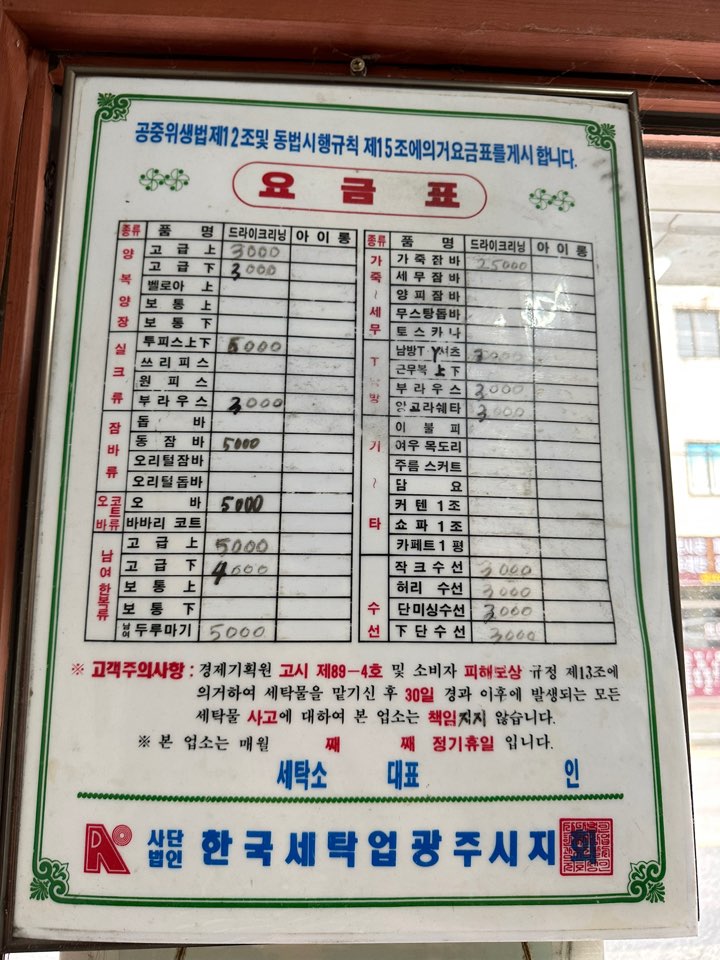 공중위생법제12조및 동법시행규칙 제15조에의거요금표를게시합니다.
요금표
종류 품명 드라이크리닝 아이롱
양복양장
고급上 3000
고급下 3000
벨로아上
보통上
보통下
실크류
투피스上下 5000
쓰리피스
원피스
부라우스 3000
잠바류
돕바
동잠바 5000
오리털잠바
오리털돕바
오바 코트류
오바 5000
바바리 코트
남여한복류
고급上 5000
고급下 4000
보통上
보통下
남여 두루마기 5000
종류 품명 드라이크리닝 아이롱
가죽~세무
가죽잠바 25000
세무잠바
양피잠바
무스탕돕바
토스카나
남방T Y셔츠 3000
근무복 上下
부라우스 3000
앙고라쉐타 3000
기~타
이불피
여우 목도리
주름 스커트
담요
커텐 1조
쇼파 1조
카페트1 평
수선
작크수선 3000
허리 수선 3000
단미싱수선 3000
下단수선 3000
※ 고객주의사항 : 경제기획원 고시 제89-4호 및 소비자 피해보상 규정 제13조에
의거하여 세탁물을 맡기신 후 30일 경과 이후에 발생되는 모든
세탁물 사고에 대하여 본 업소는 책임지지 않습니다.
※ 본 업소는 매월 째 째 정기휴일 입니다.
세탁소 대표 인
사단법인 한국세탁업광주시지회